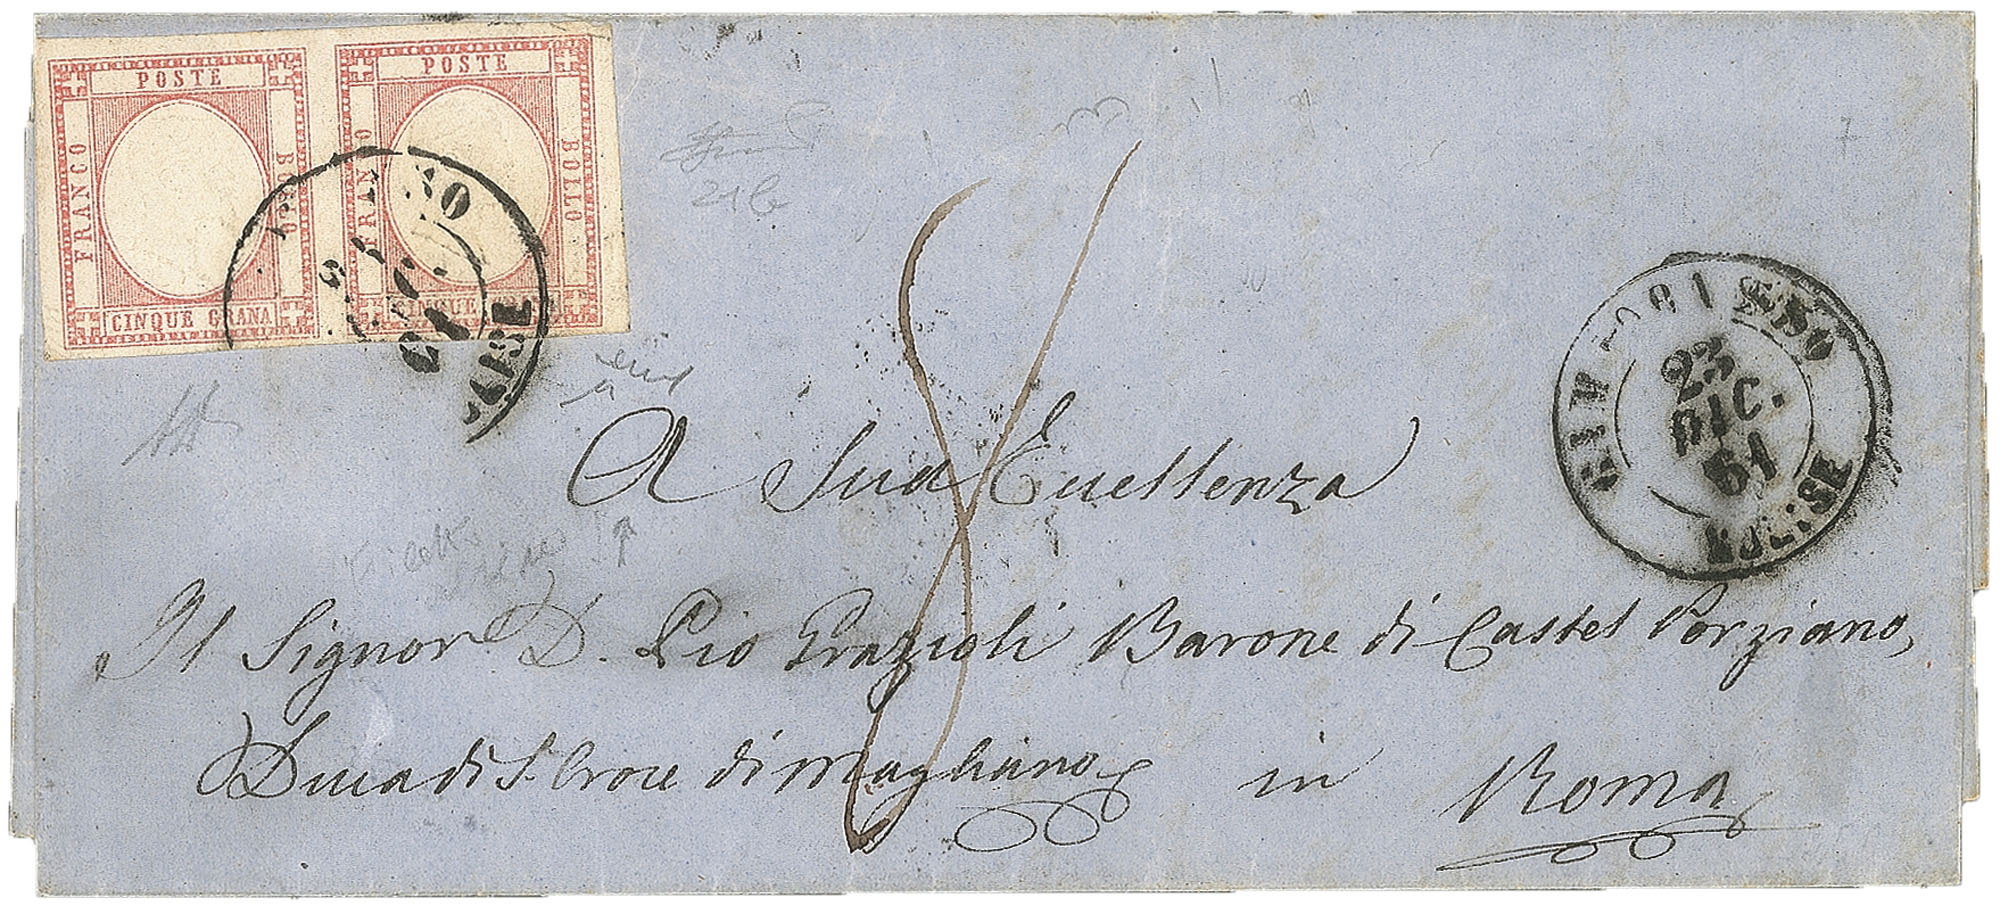 POSTE
FRANCO
BOLLO
CINQUE GRANA
POSTE
FRANCO
BOLLO
CINQUE GRANA
21b
8
23
DIC.
61
A Sua Eccellenza
Il Signor D. Pio Grazioli Barone di Castel Porziano,
Duca di S. Croce di Magliano
in Roma